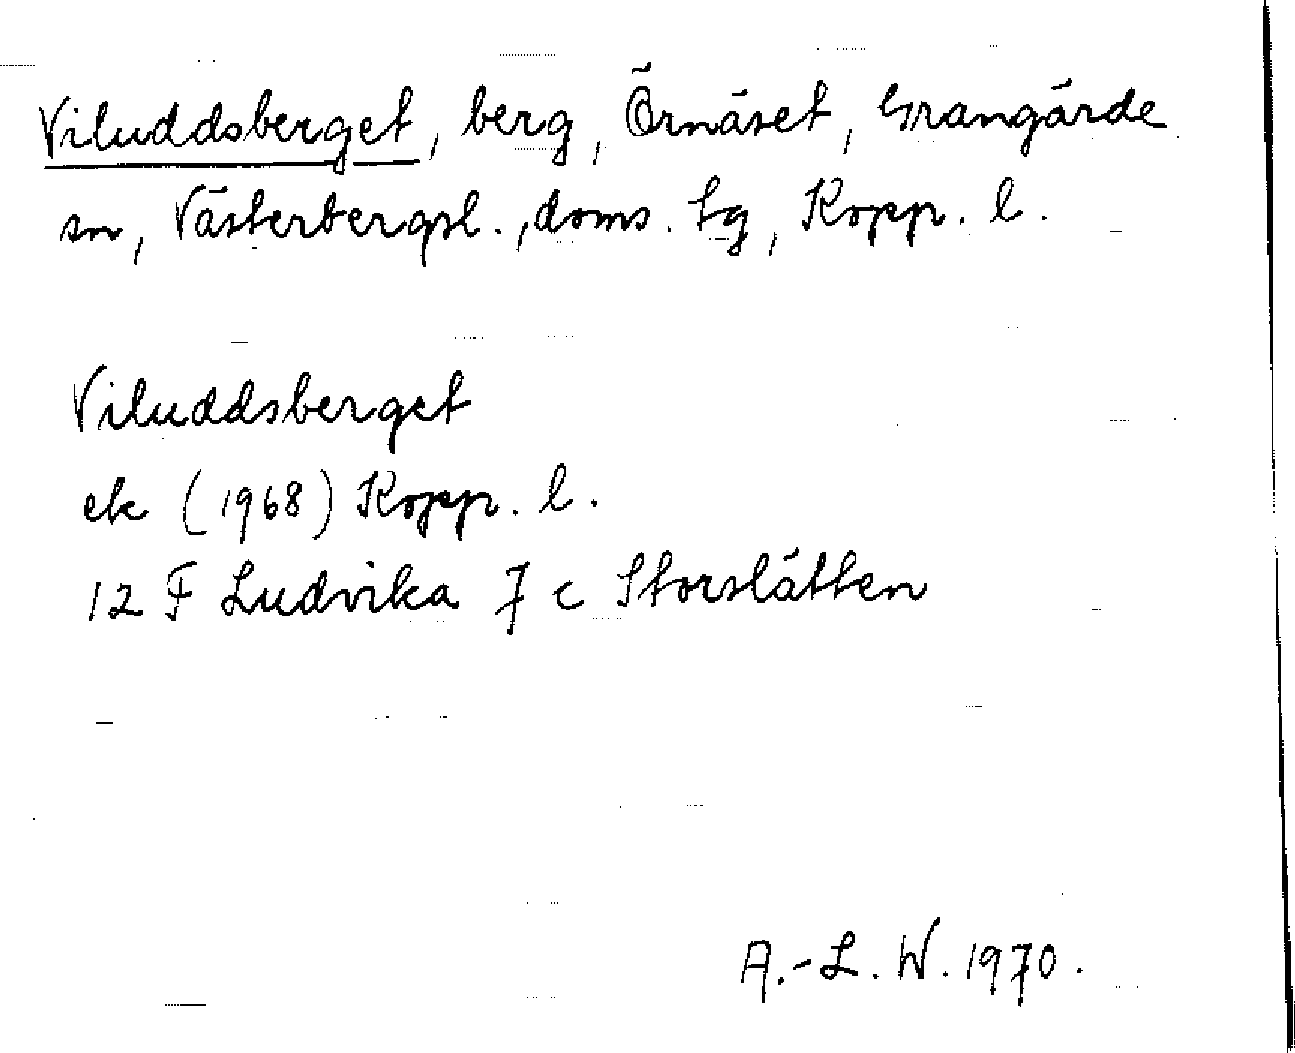 Viluddsberget, berg, Örnäset, Grangärde
sn, Västerbergsl., doms. tg, Kopp. l.
Viluddsberget
ek (1968) Kopp. l.
12 F Ludvika 7 c Storslätten
A.-L. W. 1970.